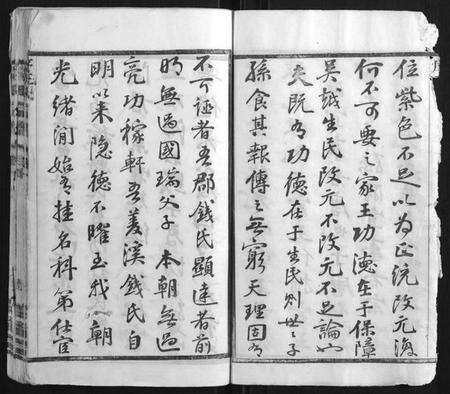 位紫色不足以為正統改元復
何不可要之家王功德在于保障
吳越生民改元不改元不足論也
夫既有功德在于生民則世之子
孫食其報傳之無窮天理固有
不可誣者吾郡錢氏顯達者前
明無過國瑞父子本朝無過
亮功稼軒吾菱溪錢氏自
明以來隱德不曜至我朝
光緒間始有挂名科第仕宦